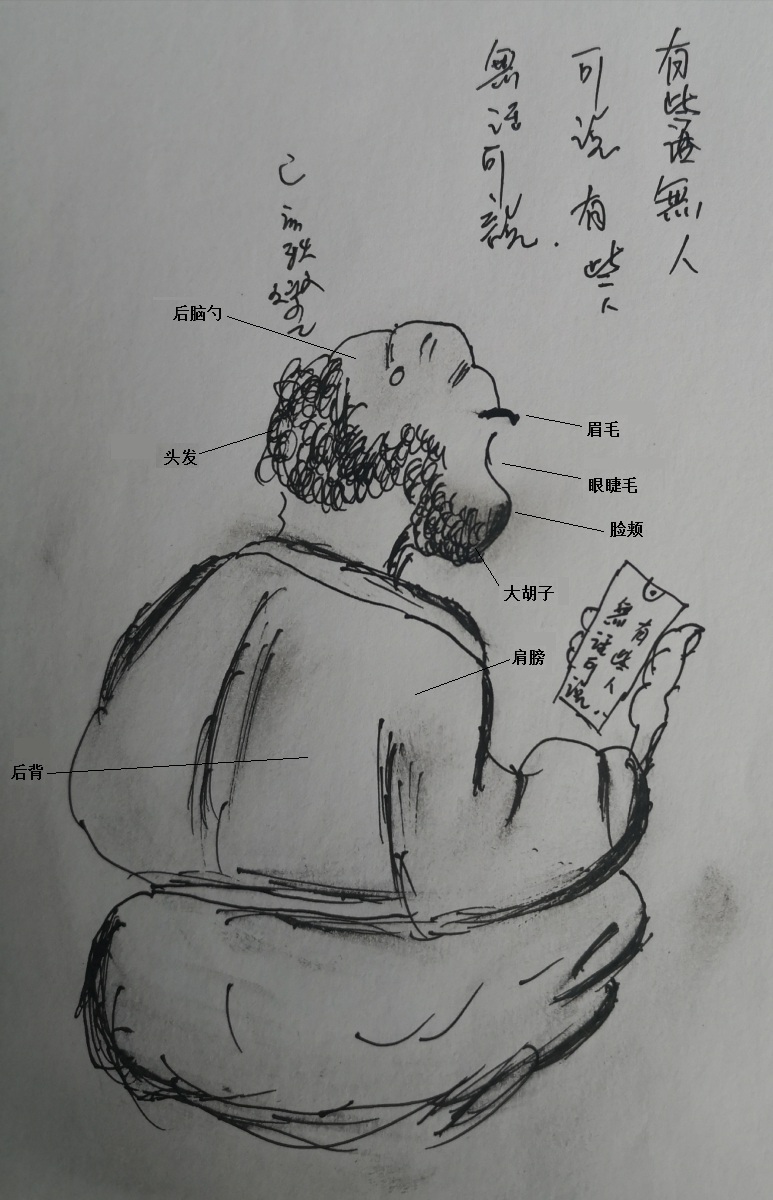 有些话無人
可说有些人
無话可説.
己
后脑勺
头发
眉毛
眼睫毛
脸颊
大胡子
有些人
無话可说..
肩膀
后背